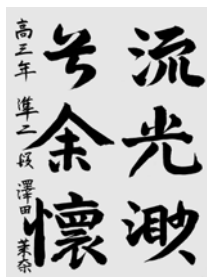 流光渺
兮余懐
高三年 準二段 澤田 茉奈